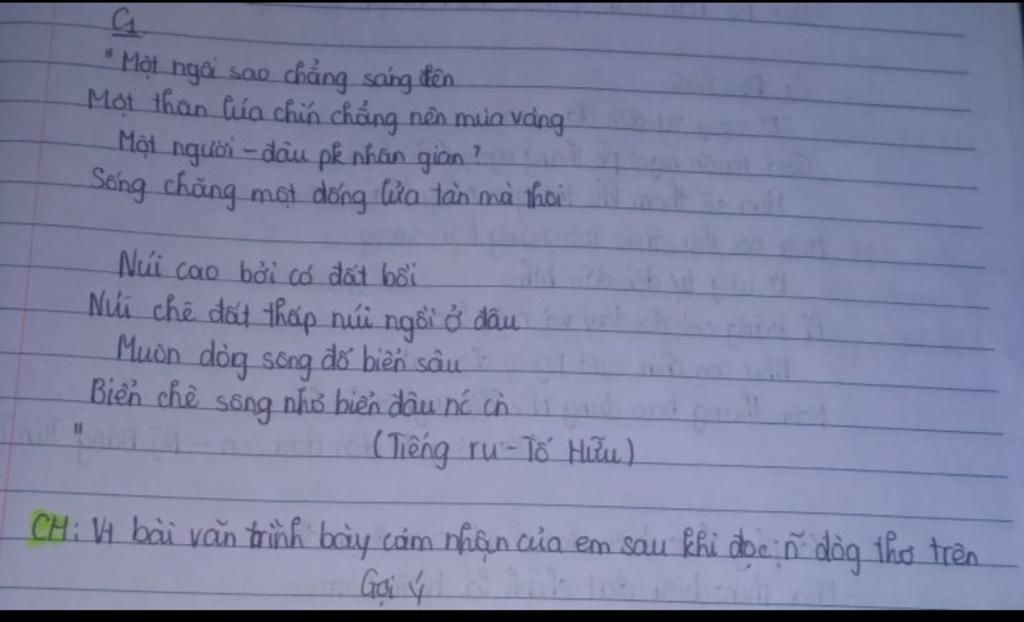 C1
"Một ngôi sao chẳng sáng đêm
Một thân lúa chín chẳng nên mùa vàng
Một người - đâu pk nhân gian?
Sống chăng một đống lửa tàn mà thôi
Núi cao bởi có đất bồi
Núi chê đất thấp núi ngồi ở đâu
Muôn dòg sông đổ biển sâu
Biển chê sông nhỏ biển đâu nc cn
"
(Tiếng ru - Tố Hữu)
CH: Vt bài văn trình bày cảm nhận của em sau khi đọc n~ dòg thơ trên
Gợi ý